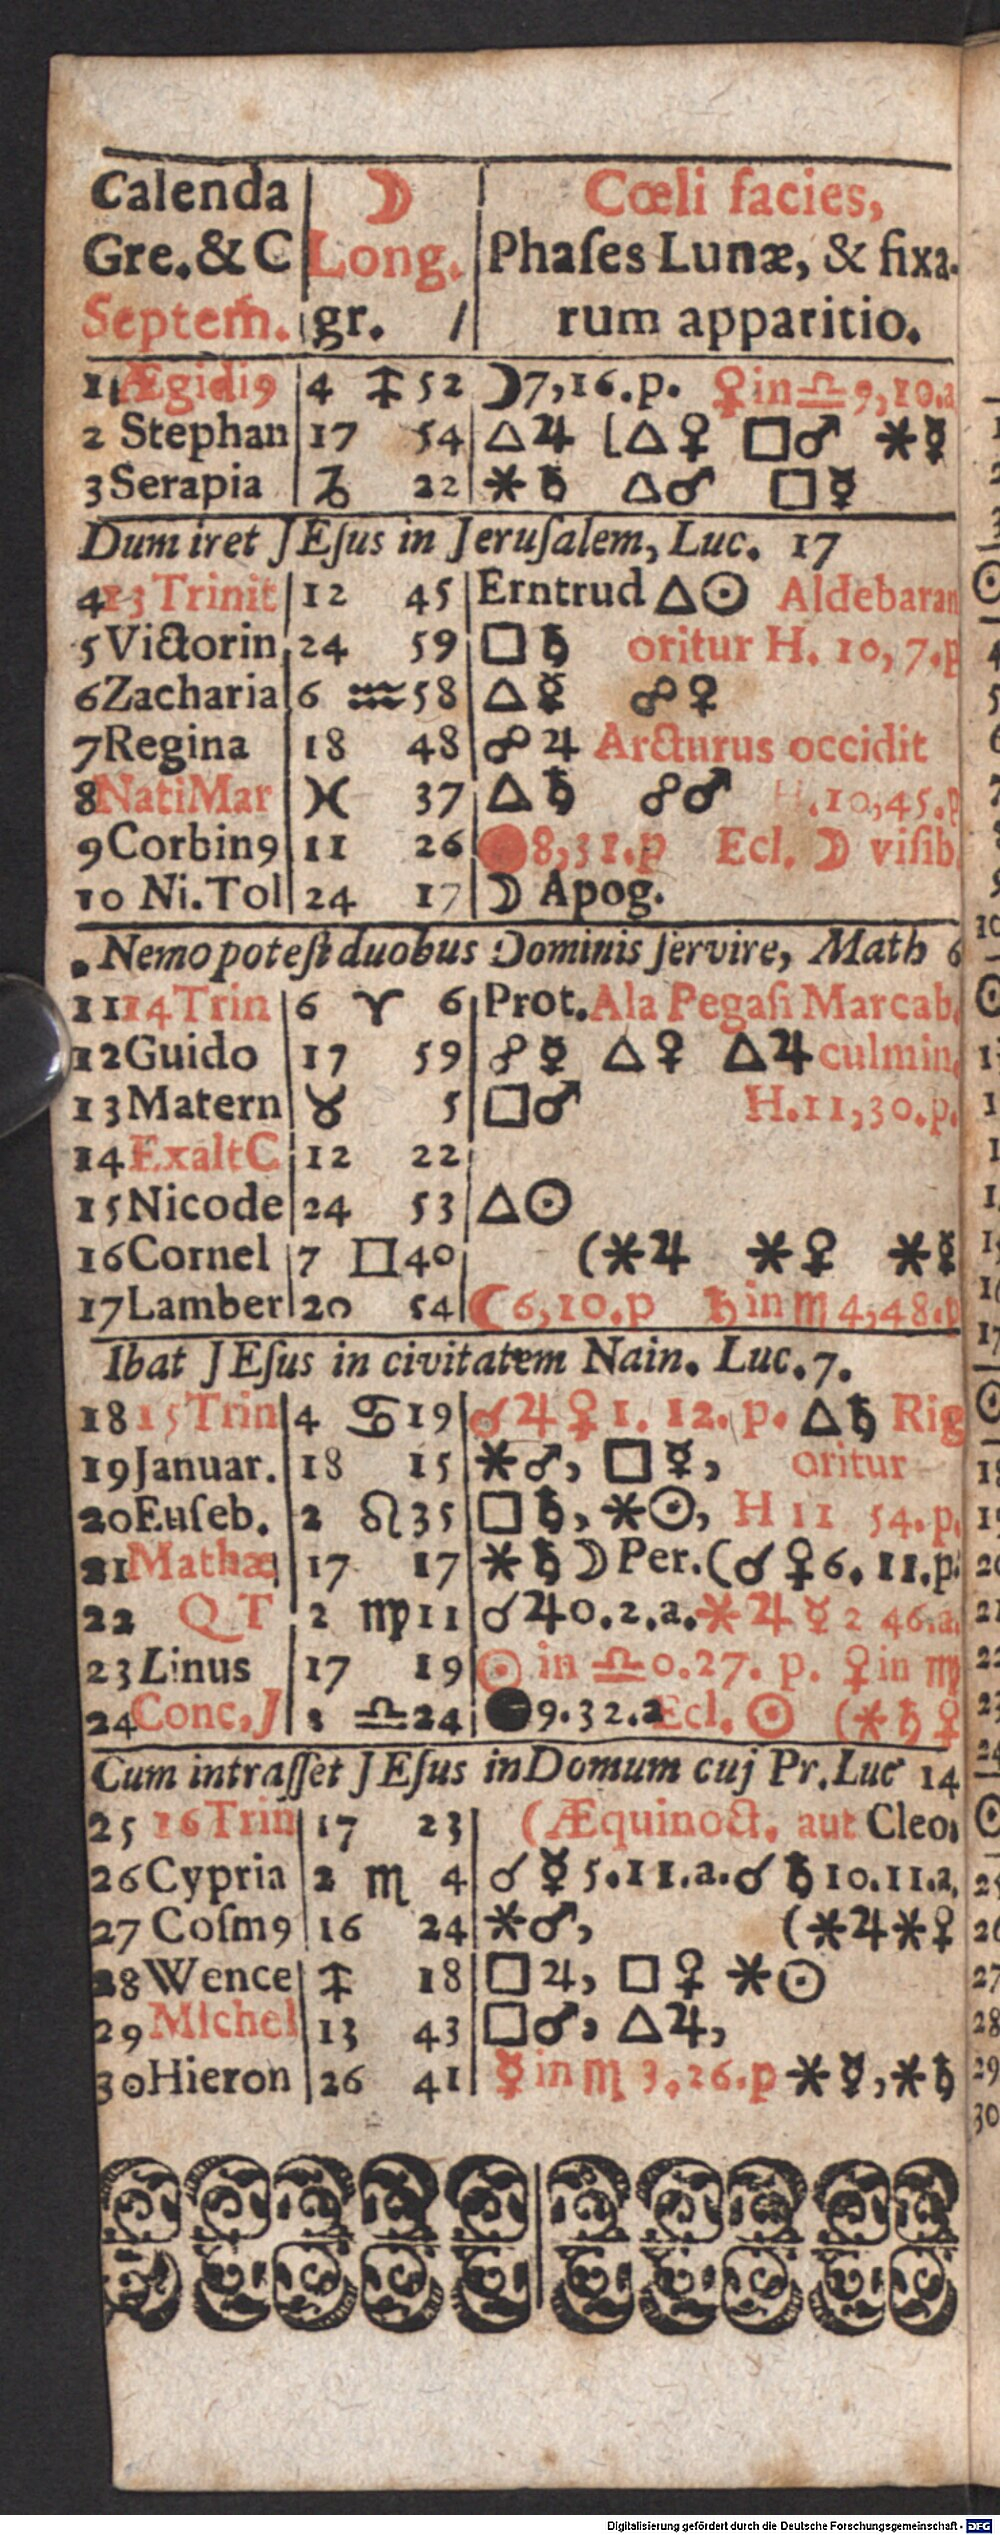 Calenda ☽ Cœli facies,
Gre. & C Long. Phaſes Lunæ, & fixa-
Septem̃. gr. / rum apparitio.
1 Ægidi9 4 ♐ 52 ☽7,16.p. ♀ in ♎ 9,10.a
2 Stephan 17 54 △♃ [△♀ □♂ ⚹☿
3 Serapia ♑ 22 ⚹♄ △♂ □☿
Dum iret JEſus in Jeruſalem, Luc. 17
4 13 Trinit 12 45 Erntrud △☉ Aldebaran
5 Victorin 24 59 □♄ oritur H. 10, 7.p
6 Zacharia 6 ♒ 58 △☿ ☍♀
7 Regina 18 48 ☍♃ Arcturus occidit
8 Nati Mar ♓ 37 △♄ ☍♂ H.10,45.p
9 Corbin9 11 26 ●8,31.p Ecl. ☽ viſib.
10 Ni. Tol 24 17 ☽ Apog.
. Nemo poteſt duobus Dominis ſervire, Math 6
11 14 Trin 6 ♈ 6 Prot. Ala Pegaſi Marcab.
12 Guido 17 59 ☍☿ △♀ △♃ culmin.
13 Matern ♉ 5 □♂ H.11,30.p.
14 Exalt C 12 22
15 Nicode 24 53 △☉
16 Cornel 7 ♊ 40 (⚹♃ ⚹♀ ⚹☿
17 Lamber 20 54 ☾6,10.p ♄ in ♏ 4,48.p
Ibat JEſus in civitatem Nain. Luc. 7.
18 15 Trin 4 ♋ 19 ☌♃♀ 1. 12. p. △♄ Rig
19 Januar. 18 15 ⚹♂, □☿, oritur
20 Euſeb. 2 ♌ 35 □♄, ⚹☉, H 11 54.p.
21 Mathæ 17 17 ⚹♄ ☽ Per. (☌♀6. 11.p.
22 Q T 2 ♍ 11 ☌♃0.2.a. ⚹♃☿ 2 46.a.
23 Linus 17 19 ☉ in ♎ 0.27. p. ♀ in ♍
24 Conc. J 3 ♎ 24 ●9.32.a Ecl. ☉ (⚹♄♀
Cum intraſſet JEſus in Domum cuj Pr. Luc 14
25 16 Trin 17 23 (Æquinoct. aut Cleo.
26 Cypria 2 ♏ 4 ☌☿5.11.a. ☌♄10.11.a.
27 Coſm9 16 24 ⚹♂, (⚹♃⚹♀
28 Wence ♐ 18 □♃, □♀ ⚹☉
29 Michel 13 43 □♂, △♃,
30 Hieron 26 41 ☿ in ♏ 3.26.p ⚹☿, ⚹♄
Digitalisierung gefördert durch die Deutsche Forschungsgemeinschaft - DFG